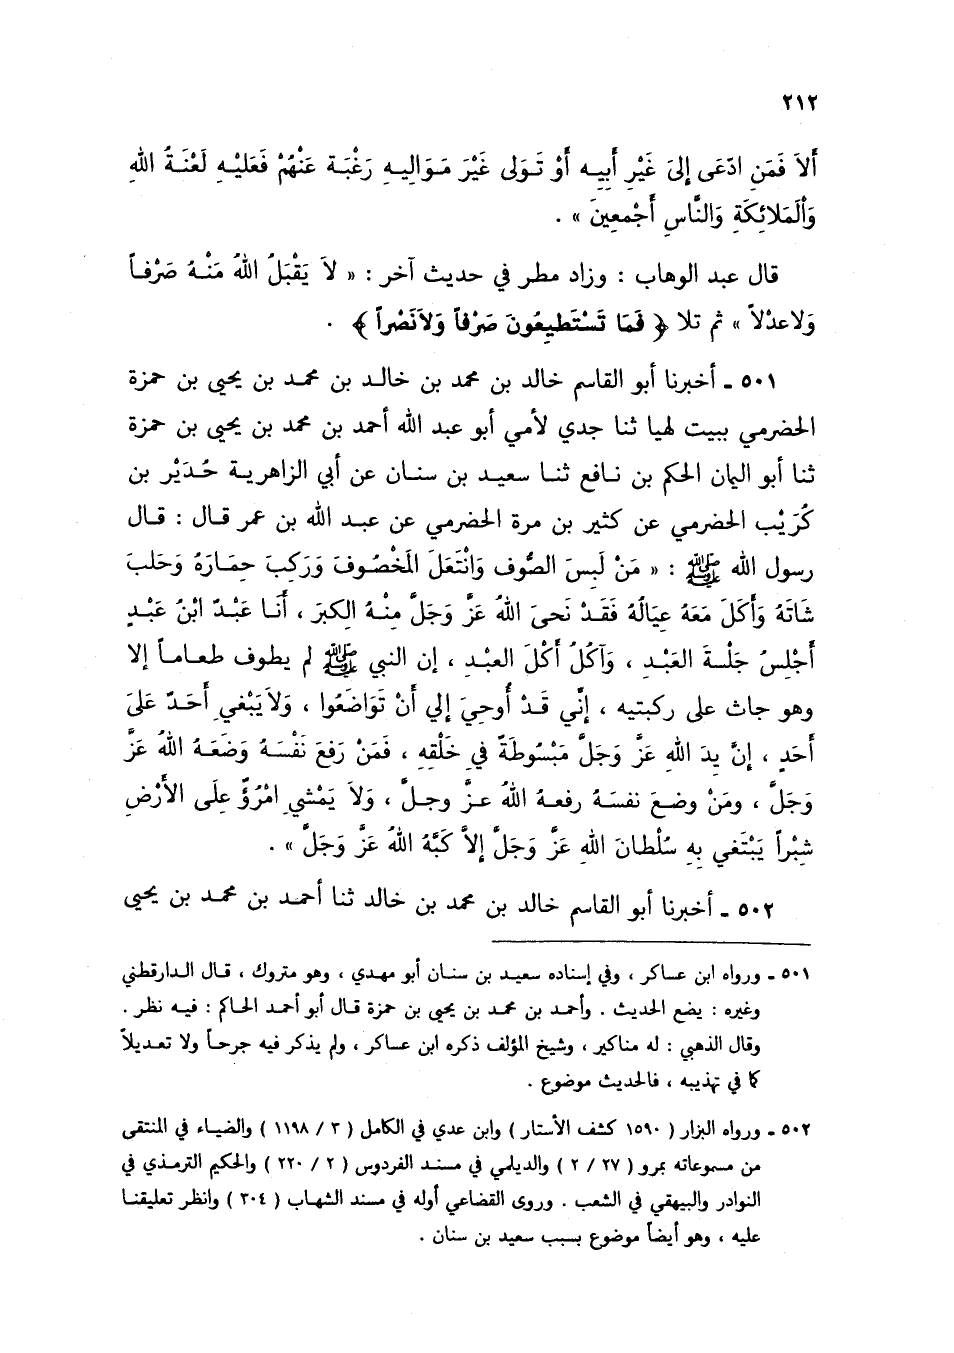 ٢١٢
أَلاَ فَمَنِ ادّعَى إِلىَ غَيْرِ أَبِيـه أَوْ تَـوَلى غَيْرَ مَـوَالِيـهِ رَغْبَـة عَنْهُمْ فَعَلَيْـهِ لَعْنَـةُ اللهِ
وَأَلمَلَائِكَةِ وَالنَّاسِ أَجْمعِينَ » .
قال عبد الوهاب : وزاد مطر في حديث آخر : « لاَ يَقْبَلُ اللهُ مَنْـهُ صَرْفـاً
وَلاعدْلاً » ثم تلا ﴿ فَمَا تَسْتَطِيعُونَ صَرْفاً وَلاَنَصْراً ﴾ .
٥٠١ ـ أخبرنا أبو القاسم خالد بن محمد بن خالـد بن محمـد بن يحيى بن حمزة
الحضرمي ببيت لهيا ثنا جدي لأمي أبو عبد الله أحمد بن محمد بن يحيى بن حمزة
ثنا أبو اليمان الحكم بن نـافع ثنـا سعيـد بن سنـان عن أبي الزاهريـة حُـدَيْر بن
كُرَيْب الحضرمي عن كثير بن مرة الحضرمي عن عبـد الله بن عمر قـال : قـال
رسول الله ﷺ : « مَنْ لَبِسَ الصُّوف وَانْتَعَلَ المَخْصُـوفَ وَرَكِبَ حِمَـارَهُ وَحَلَبَ
شَاتَهُ وَأَكَلَ مَعَهُ عِيَالُهُ فَقَـدْ نَحىَ اللهُ عَزَّ وَجَلَّ مِنْـهُ الكِبرَ ، أَنَـا عَبْـدٌ ابْنُ عَبْـدٍ
أَجْلِسُ جَلْسـةَ العَبْـدِ ، وَآكُلُ أَكْلَ العبْـدِ ، إن النبي ﷺ لم يطوف طعـامـاً إلا
وهو جاث على ركبتيه ، إِنِّي قَـدْ أُوحِيَ إِلي أَنْ تَوَاضَعُوا ، وَلاَيَبْغي أَحَـدٌ عَلىَ
أَحَدٍ ، إِنَّ يدَ اللهِ عَزَّ وَجَلَّ مَبْسُوطَةٌ فِي خَلْقِهِ ، فَمَنْ رَفعَ نَفْسَـهُ وَضَعَـهُ اللهُ عَزَّ
وَجَلَّ ، ومَنْ وضـعَ نفسَـهُ رفعـهُ اللهُ عـزَّ وجـلَّ ، وَلاَ يَمْشِي امْرُؤٌ علَى الأَرْضِ
شِبْراً يَبْتَغي بِهِ سُلْطانَ اللهِ عَزَّ وَجَلَّ إِلاَّ كَبَّهُ اللهُ عَزَّ وَجَلَّ » .
٥٠٢ ـ أخبرنا أبو القاسم خالد بن محمد بن خالد ثنا أحمـد بن محمـد بن يحيى
٥٠١ ـ ورواه ابن عسـاكر ، وفي إسناده سعيـد بن سنـان أبو مهـدي ، وهو متروك ، قـال الـدارقطني
وغيره : يضع الحديث . وأحمـد بن محمـد بن يحيى بن حمزة قـال أبو أحمـد الحـاكم : فيـه نظر .
وقال الذهبي : له مناكير ، وشيخ المؤلف ذكره ابن عسـاكر ، ولم يذكر فيه جرحـاً ولا تعـديلاً
كما في تهذيبه ، فالحديث موضوع .
٥٠٢ ـ ورواه البزار ( ١٥٩٠ كشف الأستار ) وابن عدي في الكامل ( ٣ / ١١٩٨ ) والضيـاء في المنتقى
من مسموعاته بمرو ( ٢٧ / ٢ ) والديلمي في مسنـد الفردوس ( ٢ / ٢٢٠ ) والحكيم الترمـذي في
النوادر والبيهقي في الشعب . وروى القضاعي أوله في مسند الشهاب ( ٣٠٤ ) وانظر تعليقنـا
عليه ، وهو أيضاً موضوع بسبب سعيد بن سنان .